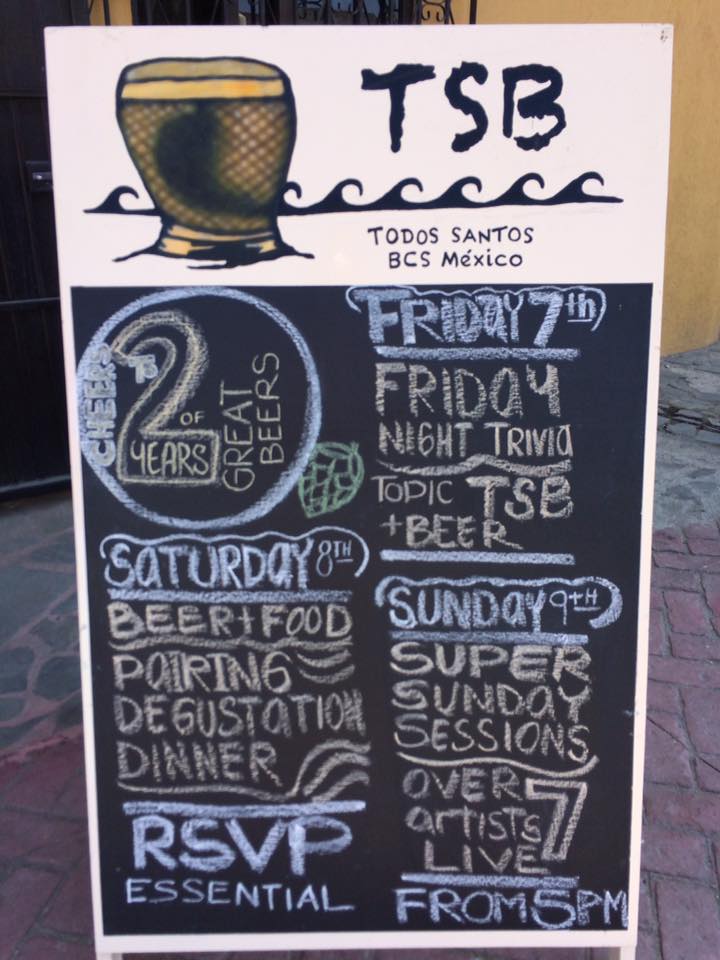 TSB
TODOS SANTOS
BCS México
CHEERS
TO
2
OF
YEARS
GREAT
BEERS
FRIDAY 7th
FRIDAY
NIGHT TRIVIA
TOPIC TSB
+ BEER
SATURDAY 8TH
BEER + FOOD
PAIRING
DEGUSTATION
DINNER
RSVP
ESSENTIAL
SUNDAY 9TH
SUPER
SUNDAY
SESSIONS
OVER 7
artists
LIVE
FROM 5PM